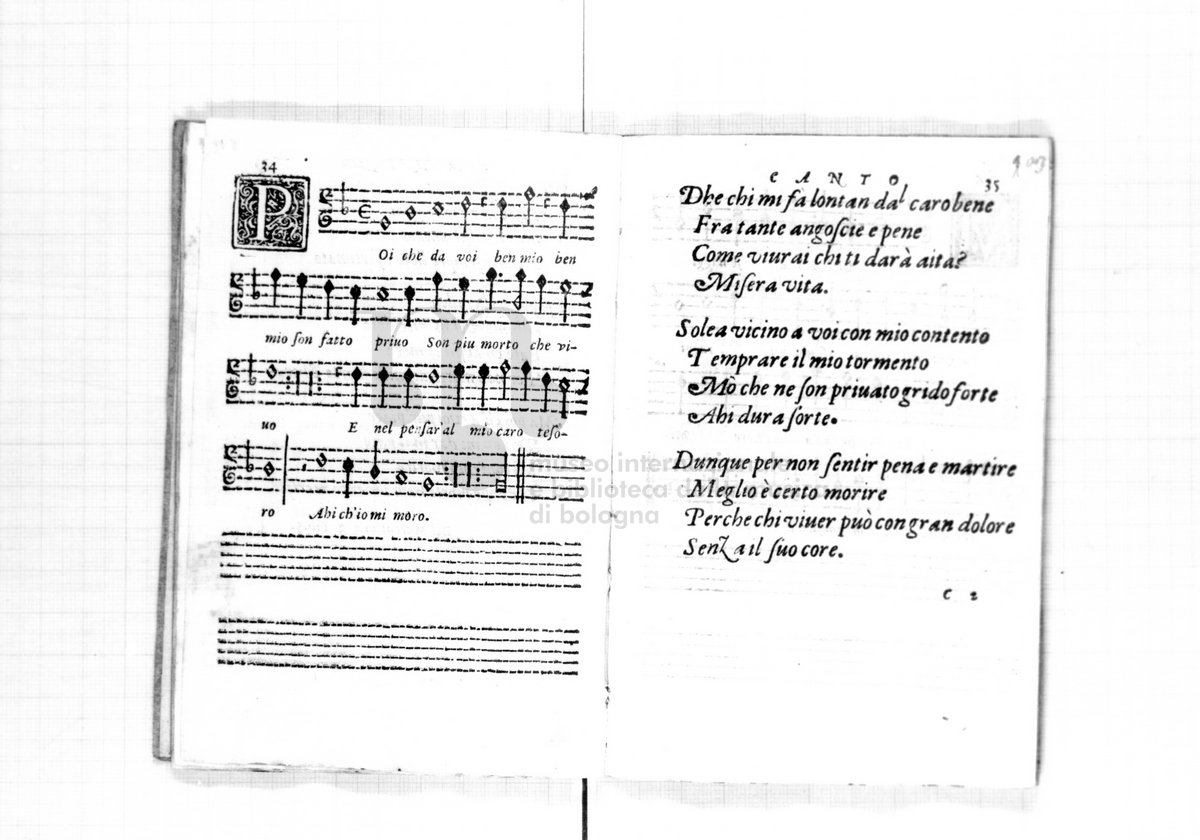 34
P
Oi che da voi ben mio ben
mio son fatto priuo Son piu morto che vi-
uo E nel pensar'al mio caro teso-
ro Ahi ch'io mi moro.
CANTO
35
Dhe chi mi fa lontan dal caro bene
Fra tante angoscie e pene
Come viurai chi ti darà aita?
Misera vita.
Solea vicino a voi con mio contento
Temprare il mio tormento
Mò che ne son priuato grido forte
Ahi dura sorte.
Dunque per non sentir pena e martire
Meglio è certo morire
Perche chi viuer può con gran dolore
Senza il suo core.
C 2
museo internazionale
e biblioteca della musica
di bologna